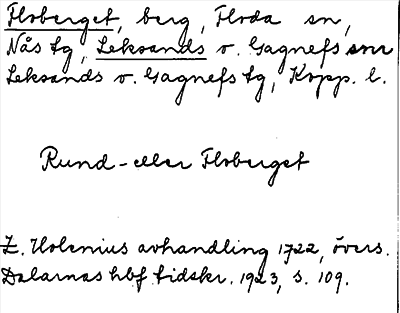 Floberget, berg, Floda sn,
Nås tg, Leksands o. Gagnefs snr
Leksands o. Gagnefs tg, Kopp. l.
Rund- eller Floberget
Z. Holenius avhandling 1722, övers.
Dalarnas hbf tidskr. 1923, s. 109.